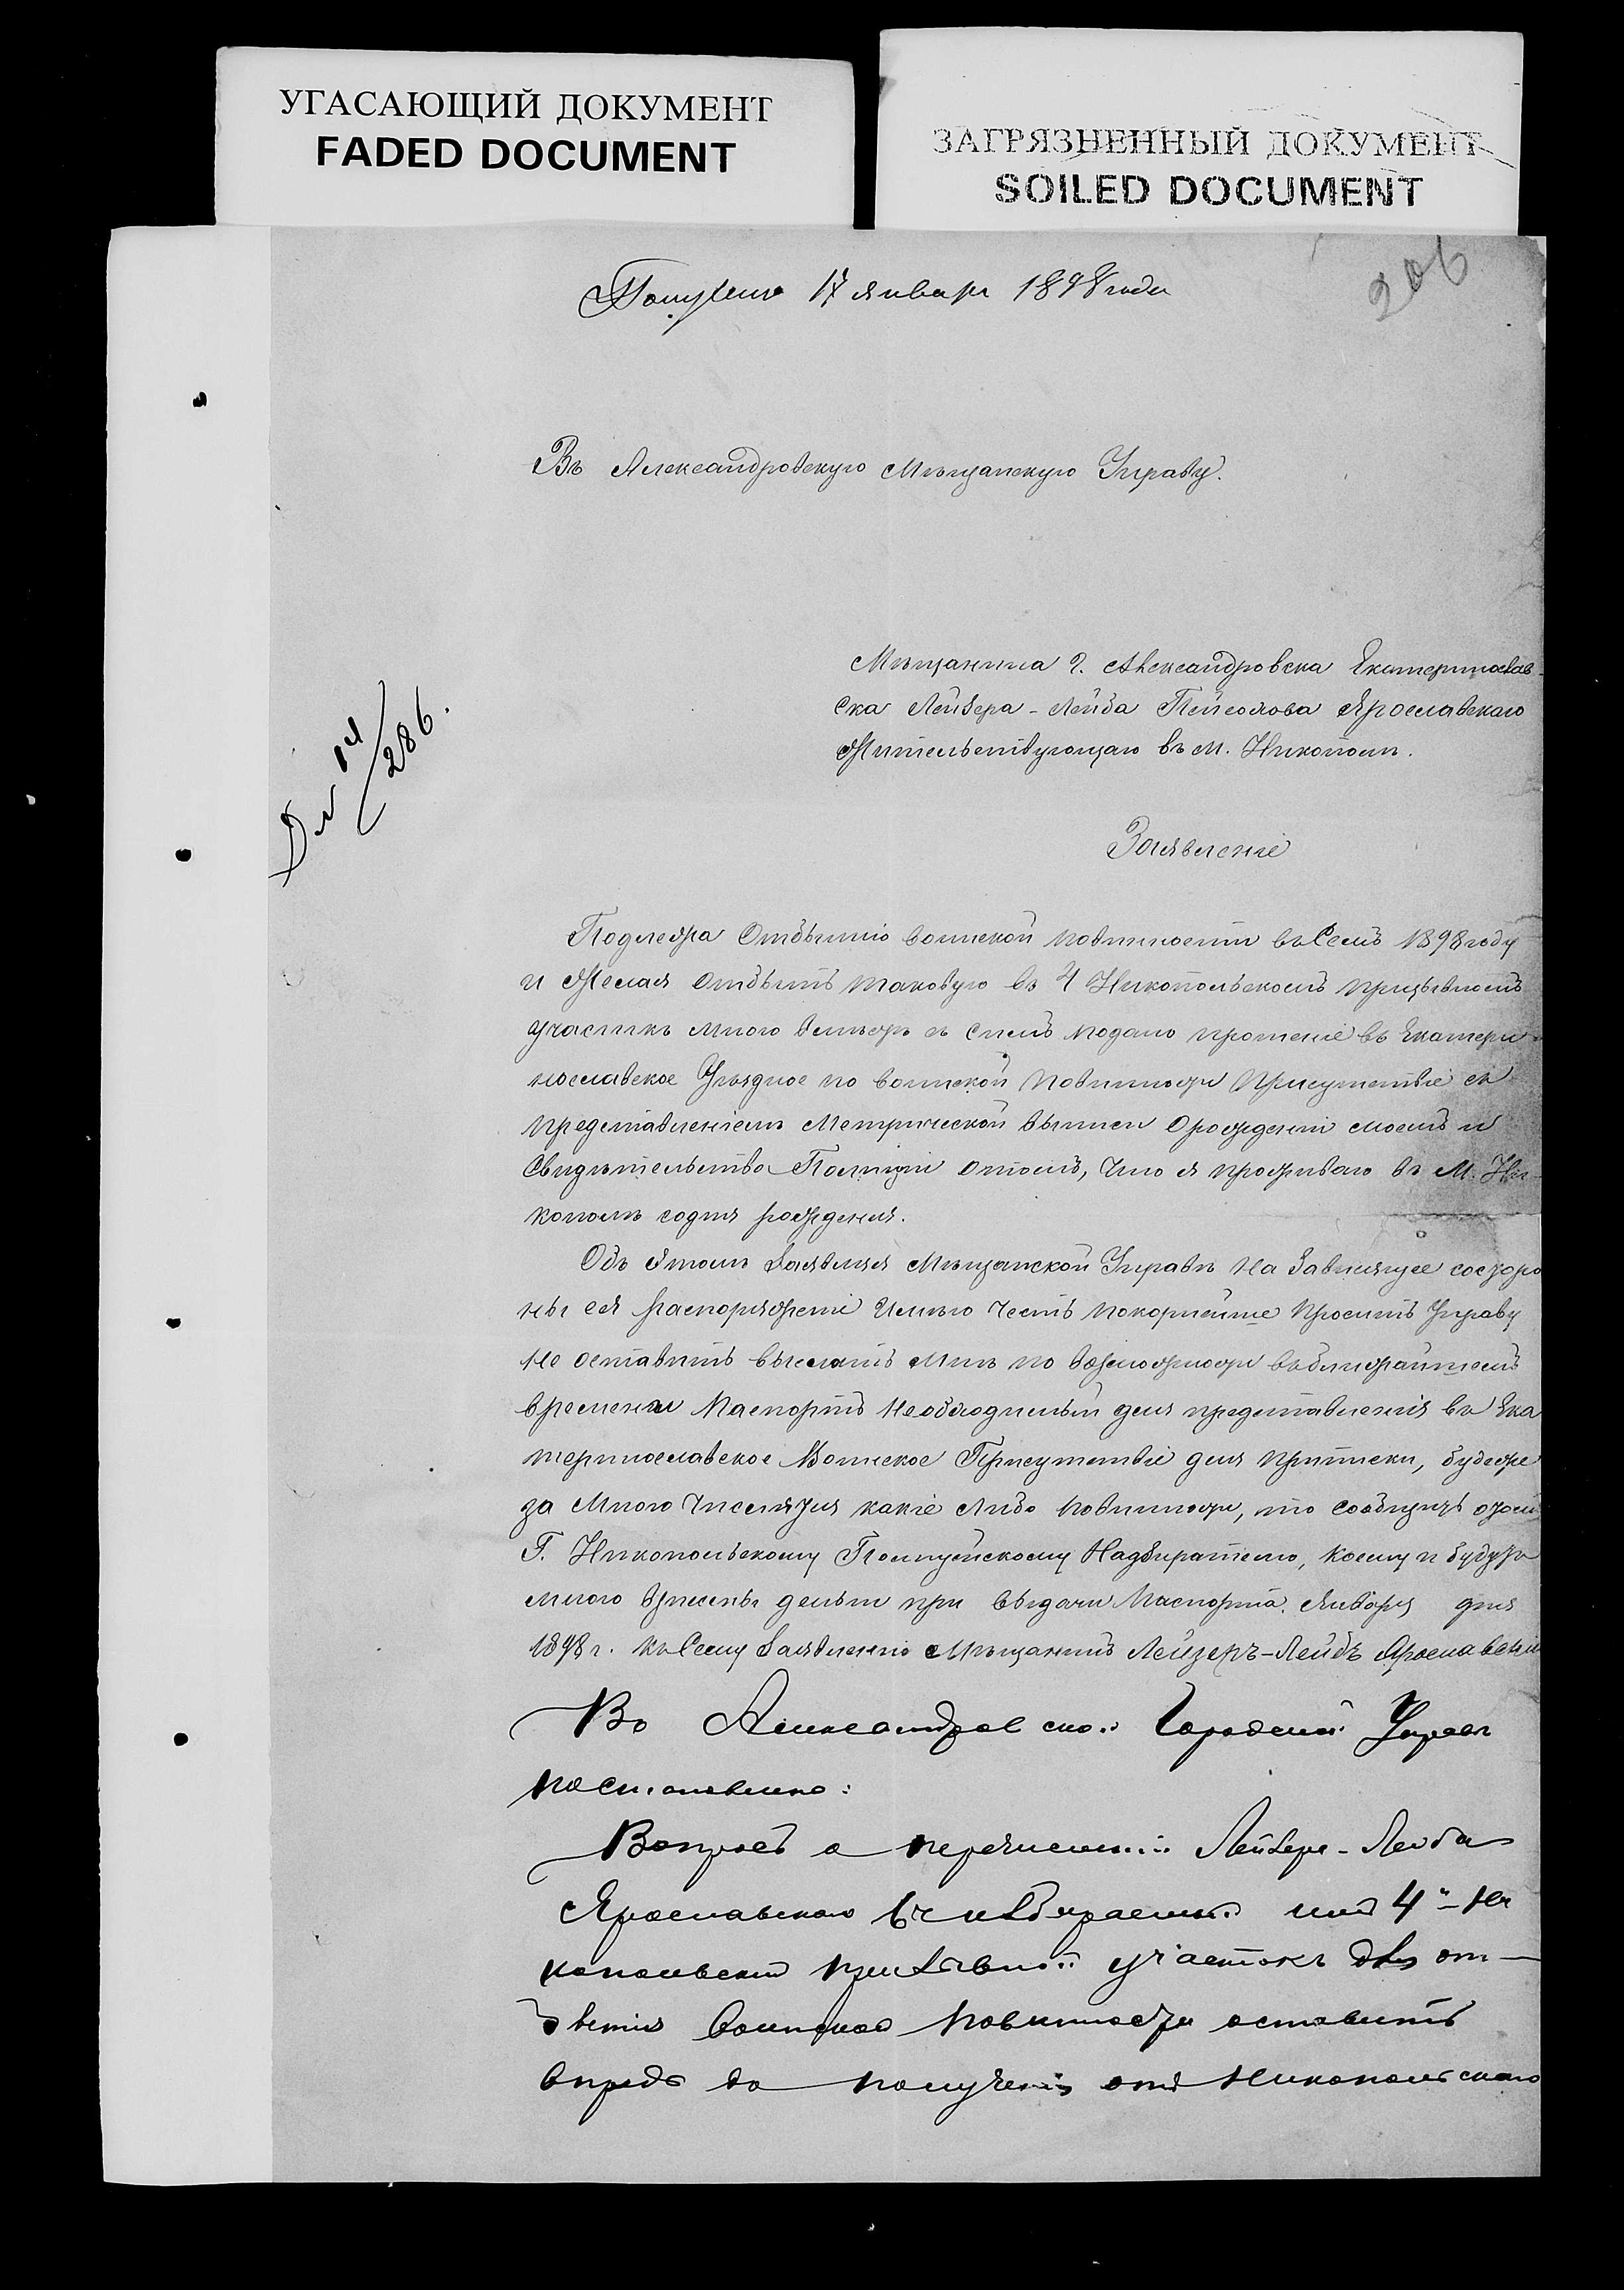 УГАСАЮЩИЙ ДОКУМЕНТ
FADED DOCUMENT
ЗАГРЯЗНЕННЫЙ ДОКУМЕНТ
SOILED DOCUMENT
206
Получено 17 января 1898 года
Въ Александровскую Мѣщанскую Управу.
Мѣщанина г. Александровска Екатеринослав-
ска Лейзера-Лейба Ярославскаго
Жительствующаго въ м. Никополѣ.
14/286.
Заявленіе
Подлежа отбытію воинской повинности въ семъ 1898 году
и желая отбыть таковую въ 4 Никопольскомъ призывномъ
участкѣ мною вмѣстѣ съ симъ подано прошеніе въ Екатери-
нославское Уѣздное по воинской повинности Присутствіе съ
представленіемъ Метрической выписи о рожденіи моемъ и
Свидѣтельства Полиціи отомъ, что я проживаю въ М. Ни-
кополѣ содня рожденія.
Объ этомъ Заявляя Мѣщанской Управѣ на Зависящее состоро
ны ея распоряженіе Имѣю честь покорнѣйше просить Управу
не оставить выслать мнѣ по возможности въближайшемъ
времени Паспортъ необходимый для представленія въ Ека
теринославское Воинское Присутствіе для приписки, будеже
за мною числятся какіе либо повинности, то сообщить отомъ
Г. Никопольскому Полицейскому Надзирателю, коему и будутъ
мною деньги при выдачи Паспорта. Января дня
1898 г. къ Сему Заявленію Мѣщанинъ Лейзеръ-Лейбъ Ярославскій
Въ Александровской Городской Управѣ
постановлено:
Вопросъ о перечисленіи Лейзера-Лейба
Ярославскаго въ избираемый имъ 4й Ни
копольскій призывной участокъ для от-
бытія воинской повинности оставить
впредь до полученія отъ Никопольскаго